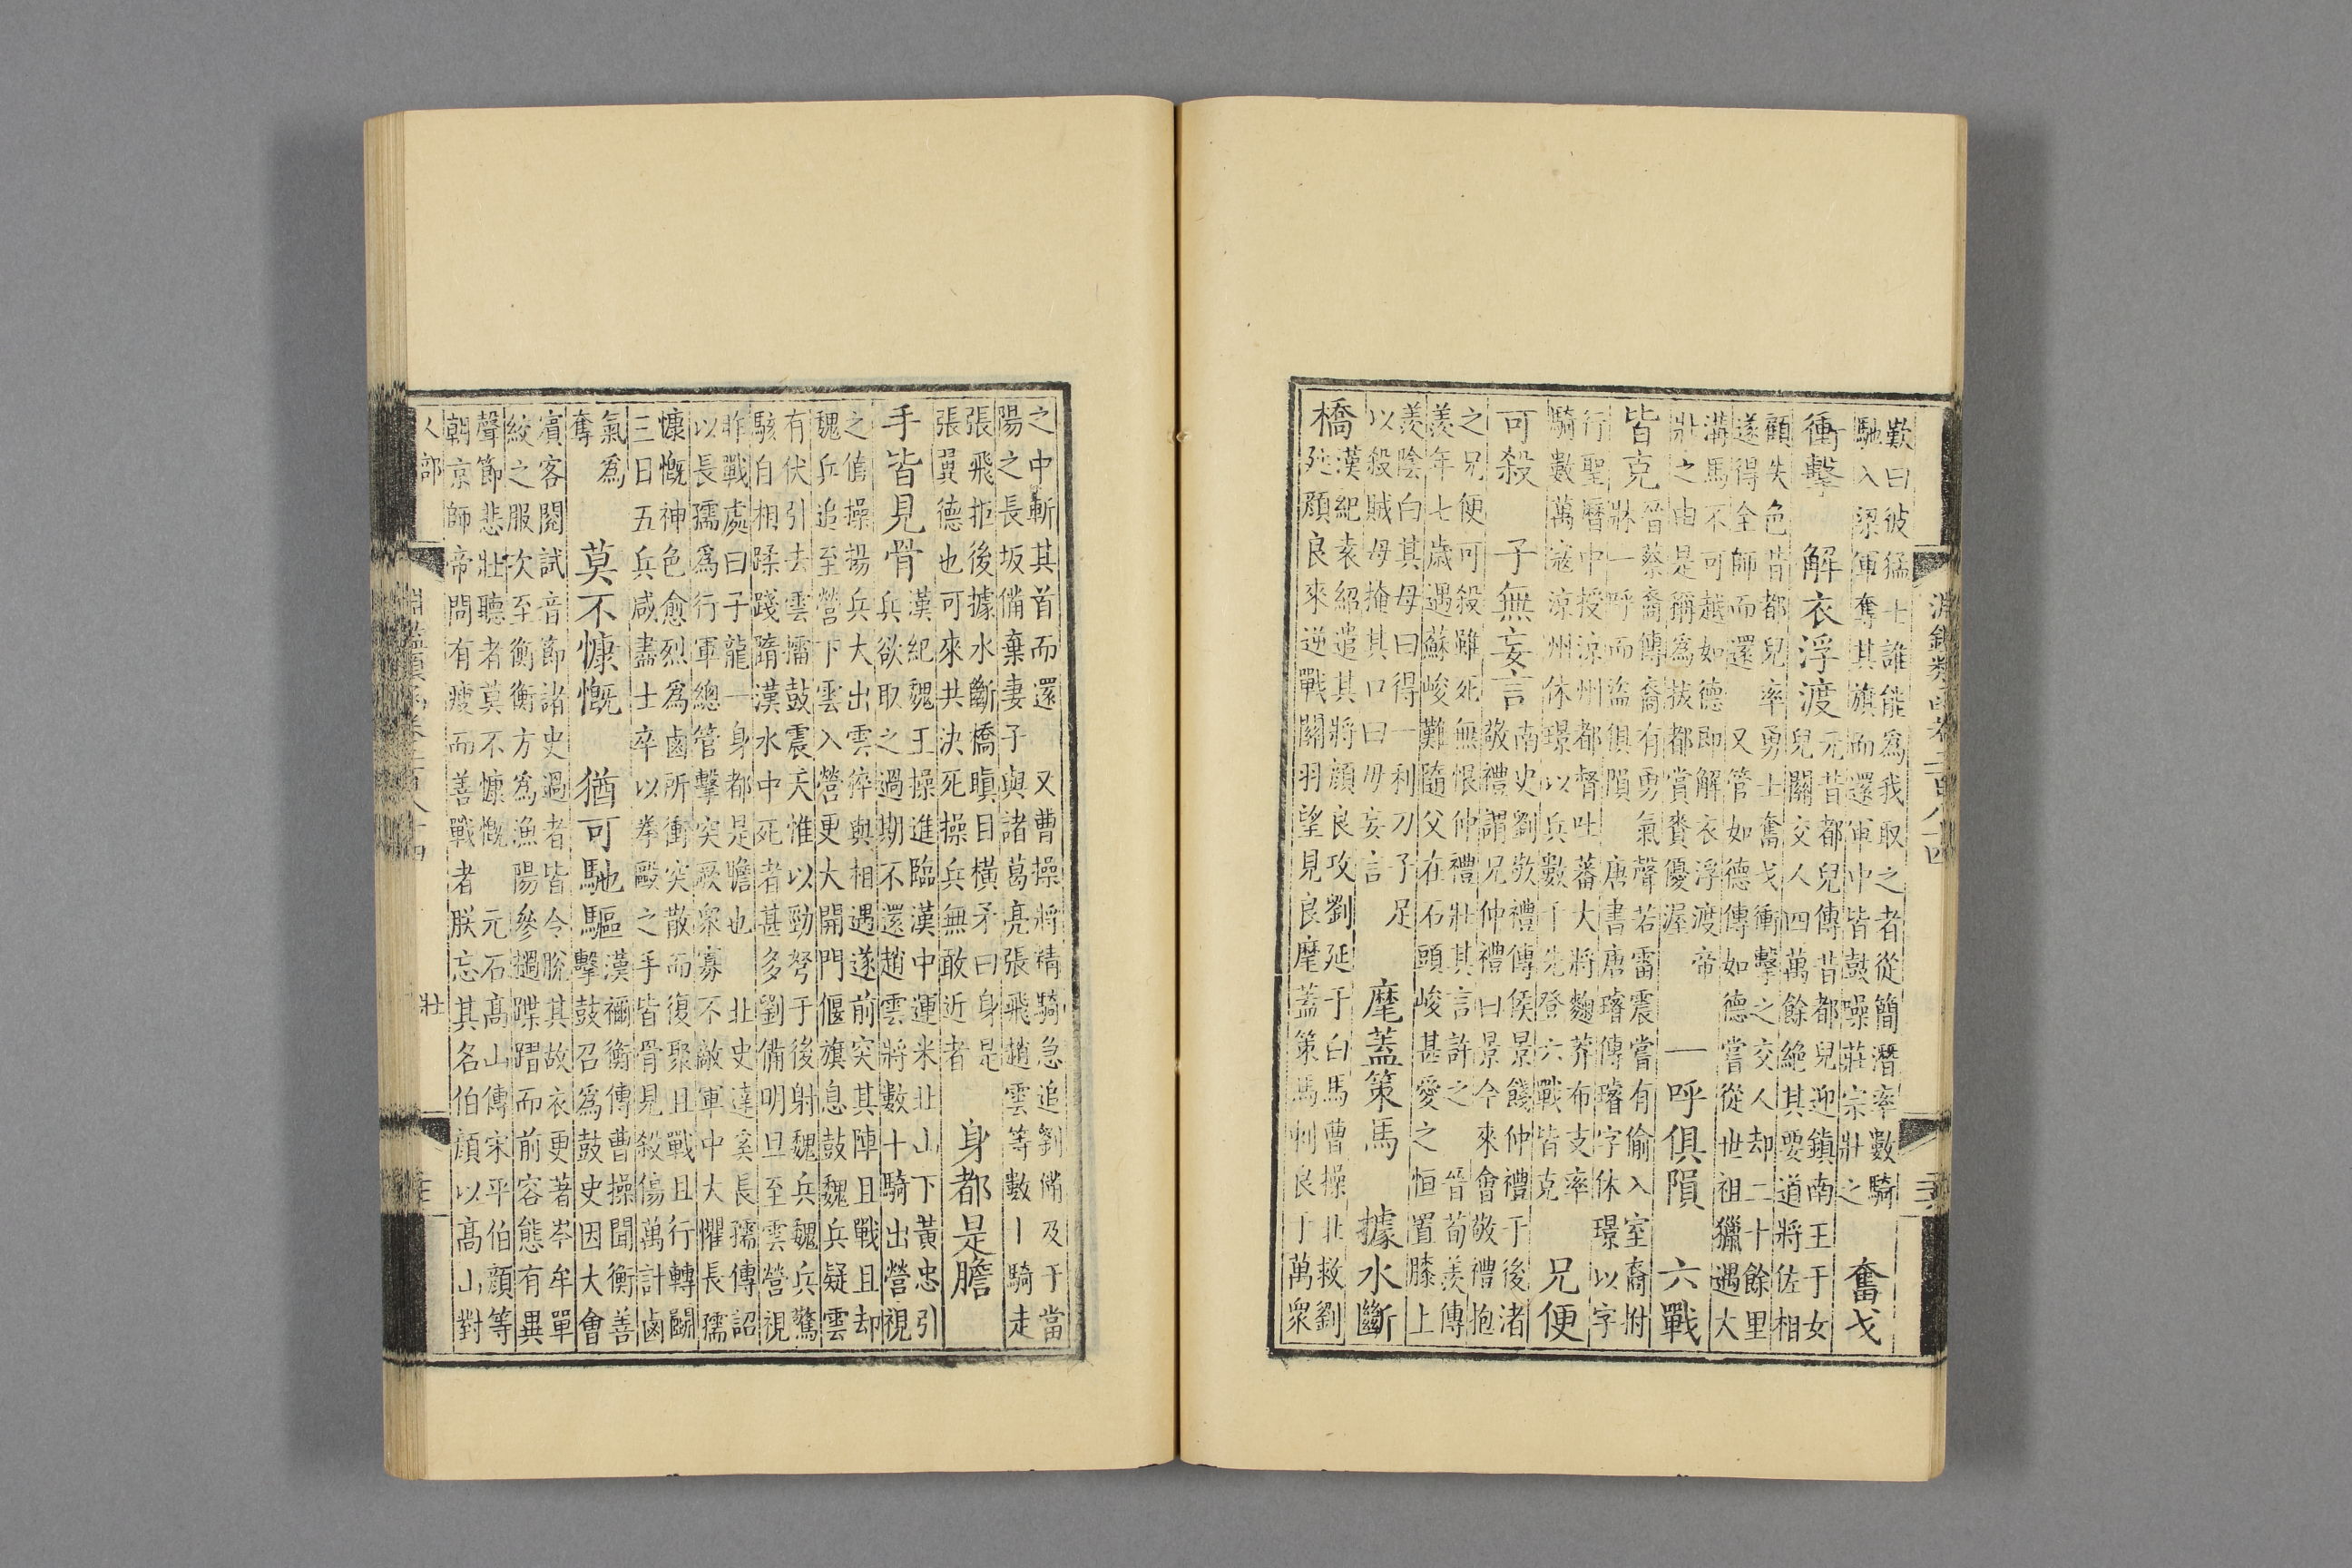 歎曰彼猛士誰能爲我取之者從簡潛率數騎
馳入梁軍奪其旗而還軍中皆鼓噪莊宗壯之
奮戈
衝擊 解衣浮渡
元昔都兒傳昔都兒迎鎮南王于女
兒關交人四萬餘絶其要道將佐相
顧失色昔都兒率勇士奮戈衝擊之交人却二十餘里
遂得全師而還 又管如德傳如德嘗從世祖獵遇大
溝馬不可越如德即解衣浮渡帝
壯之由是稱爲拔都賞賚優渥
一呼俱隕 六戰
皆克
晉蔡裔傳裔有勇氣聲若雷震嘗有偷入室裔拊
牀一呼而盜俱隕 唐書唐璿傳璿字休璟以字
行聖曆中授涼州都督吐蕃大將麴莽布支率
騎數萬寇涼州休璟以兵數千先登六戰皆克
兄便
可殺 子無妄言
南史劉敬禮傳侯景餞仲禮于後渚
敬禮謂兄仲禮曰景今來會敬禮抱
之兄便可殺雖死無恨仲禮壯其言許之 晉荀羨傳
羨年七歲遇蘇峻難隨父在石頭峻甚愛之恒置膝上
羨陰白其母曰得一利刀子足
以殺賊母掩其口曰毋妄言
麾蓋策馬 據水斷
橋
漢紀袁紹遣其將顏良攻劉延于白馬曹操北救劉
延顏良來逆戰關羽望見良麾蓋策馬刺良于萬衆
之中斬其首而還 又曹操將精騎急追劉備及于當
陽之長坂備棄妻子與諸葛亮張飛趙雲等數十騎走
張飛拒後據水斷橋瞋目橫矛曰身是
張翼德也可來共決死操兵無敢近者
身都是膽
手皆見骨
漢紀魏王操進臨漢中運米北山下黃忠引
兵欲取之過期不還趙雲將數十騎出營視
之值操揚兵大出雲猝與相遇遂前突其陣且戰且却
魏兵追至營下雲入營更大開門偃旗息鼓魏兵疑雲
有伏引去雲擂鼓震天惟以勁弩于後射魏兵魏兵驚
駭自相蹂踐墮漢水中死者甚多劉備明旦至雲營視
昨戰處曰子龍一身都是膽也 北史達奚長孺傳詔
以長孺爲行軍總管擊突厥衆寡不敵軍中大懼長孺
慷慨神色愈烈爲鹵所衝突散而復聚且戰且行轉鬬
三日五兵咸盡士卒以拳毆之手皆骨見殺傷萬計鹵
氣爲
奪
莫不慷慨 猶可馳驅
漢禰衡傳曹操聞衡善
擊鼓召爲鼓史因大會
賓客閱試音節諸史過者皆令脫其故衣更著岑牟單
絞之服次至衡衡方爲漁陽參撾蹀躞而前容態有異
聲節悲壯聽者莫不慷慨 元石高山傳宋平伯顏等
朝京師帝問有瘦而善戰者朕忘其名伯顏以高山對
人部 壯